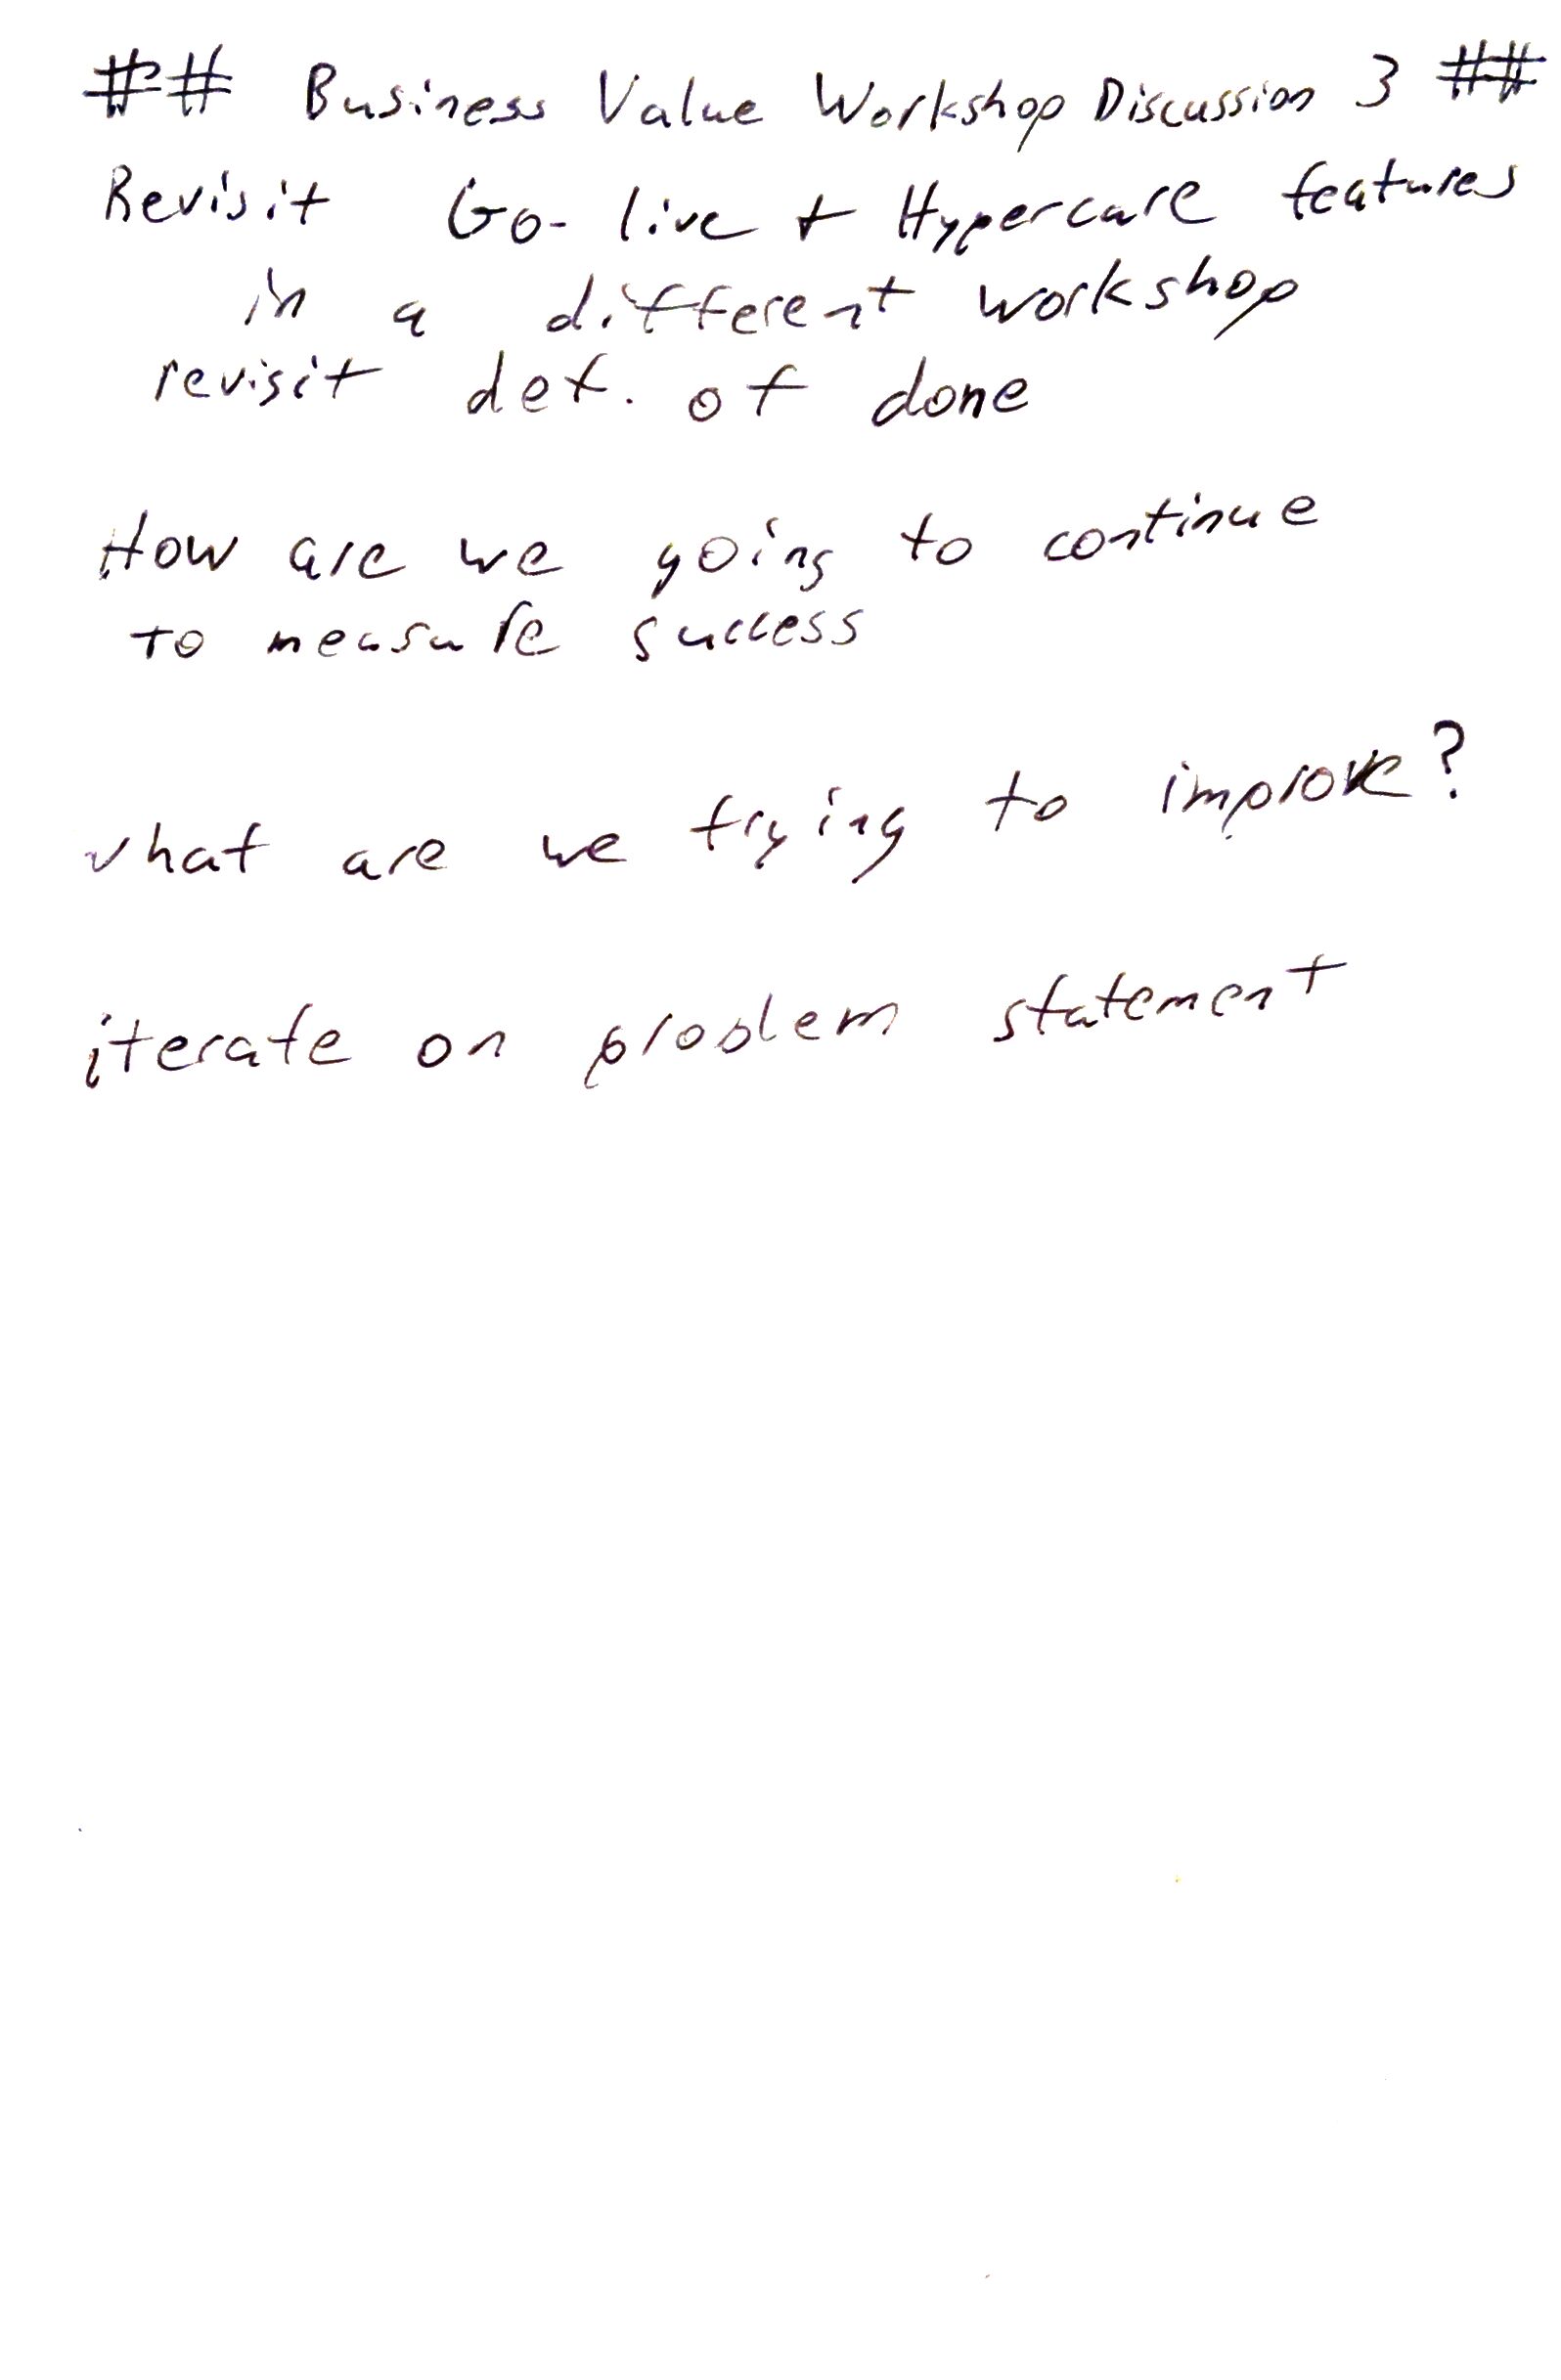 ## Business Value Workshop Discussion 3 ##
Revisit Go-live + Hypercare features
in a different workshop
revisit def. of done
How are we going to continue
to measure success
what are we trying to improve?
iterate on problem statement